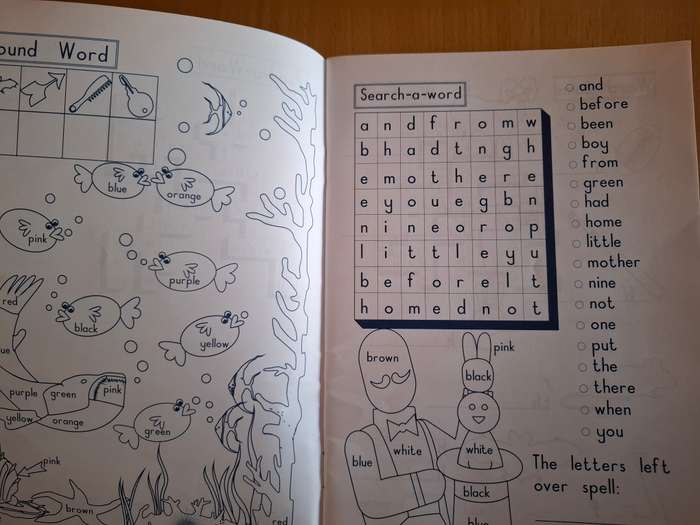 ound Word
blue
orange
pink
purple
red
black
yellow
ue
purple green pink
yellow orange
green
pink
brown
red
Search-a-word
a n d f r o m w
b h a d t n g h
e m o t h e r e
e y o u e g b n
n i n e o r o p
l i t t l e y u
b e f o r e l t
h o m e d n o t
and
before
been
boy
from
green
had
home
little
mother
nine
not
one
put
the
there
when
you
brown
pink
black
blue white white
black
blue
The letters left
over spell: